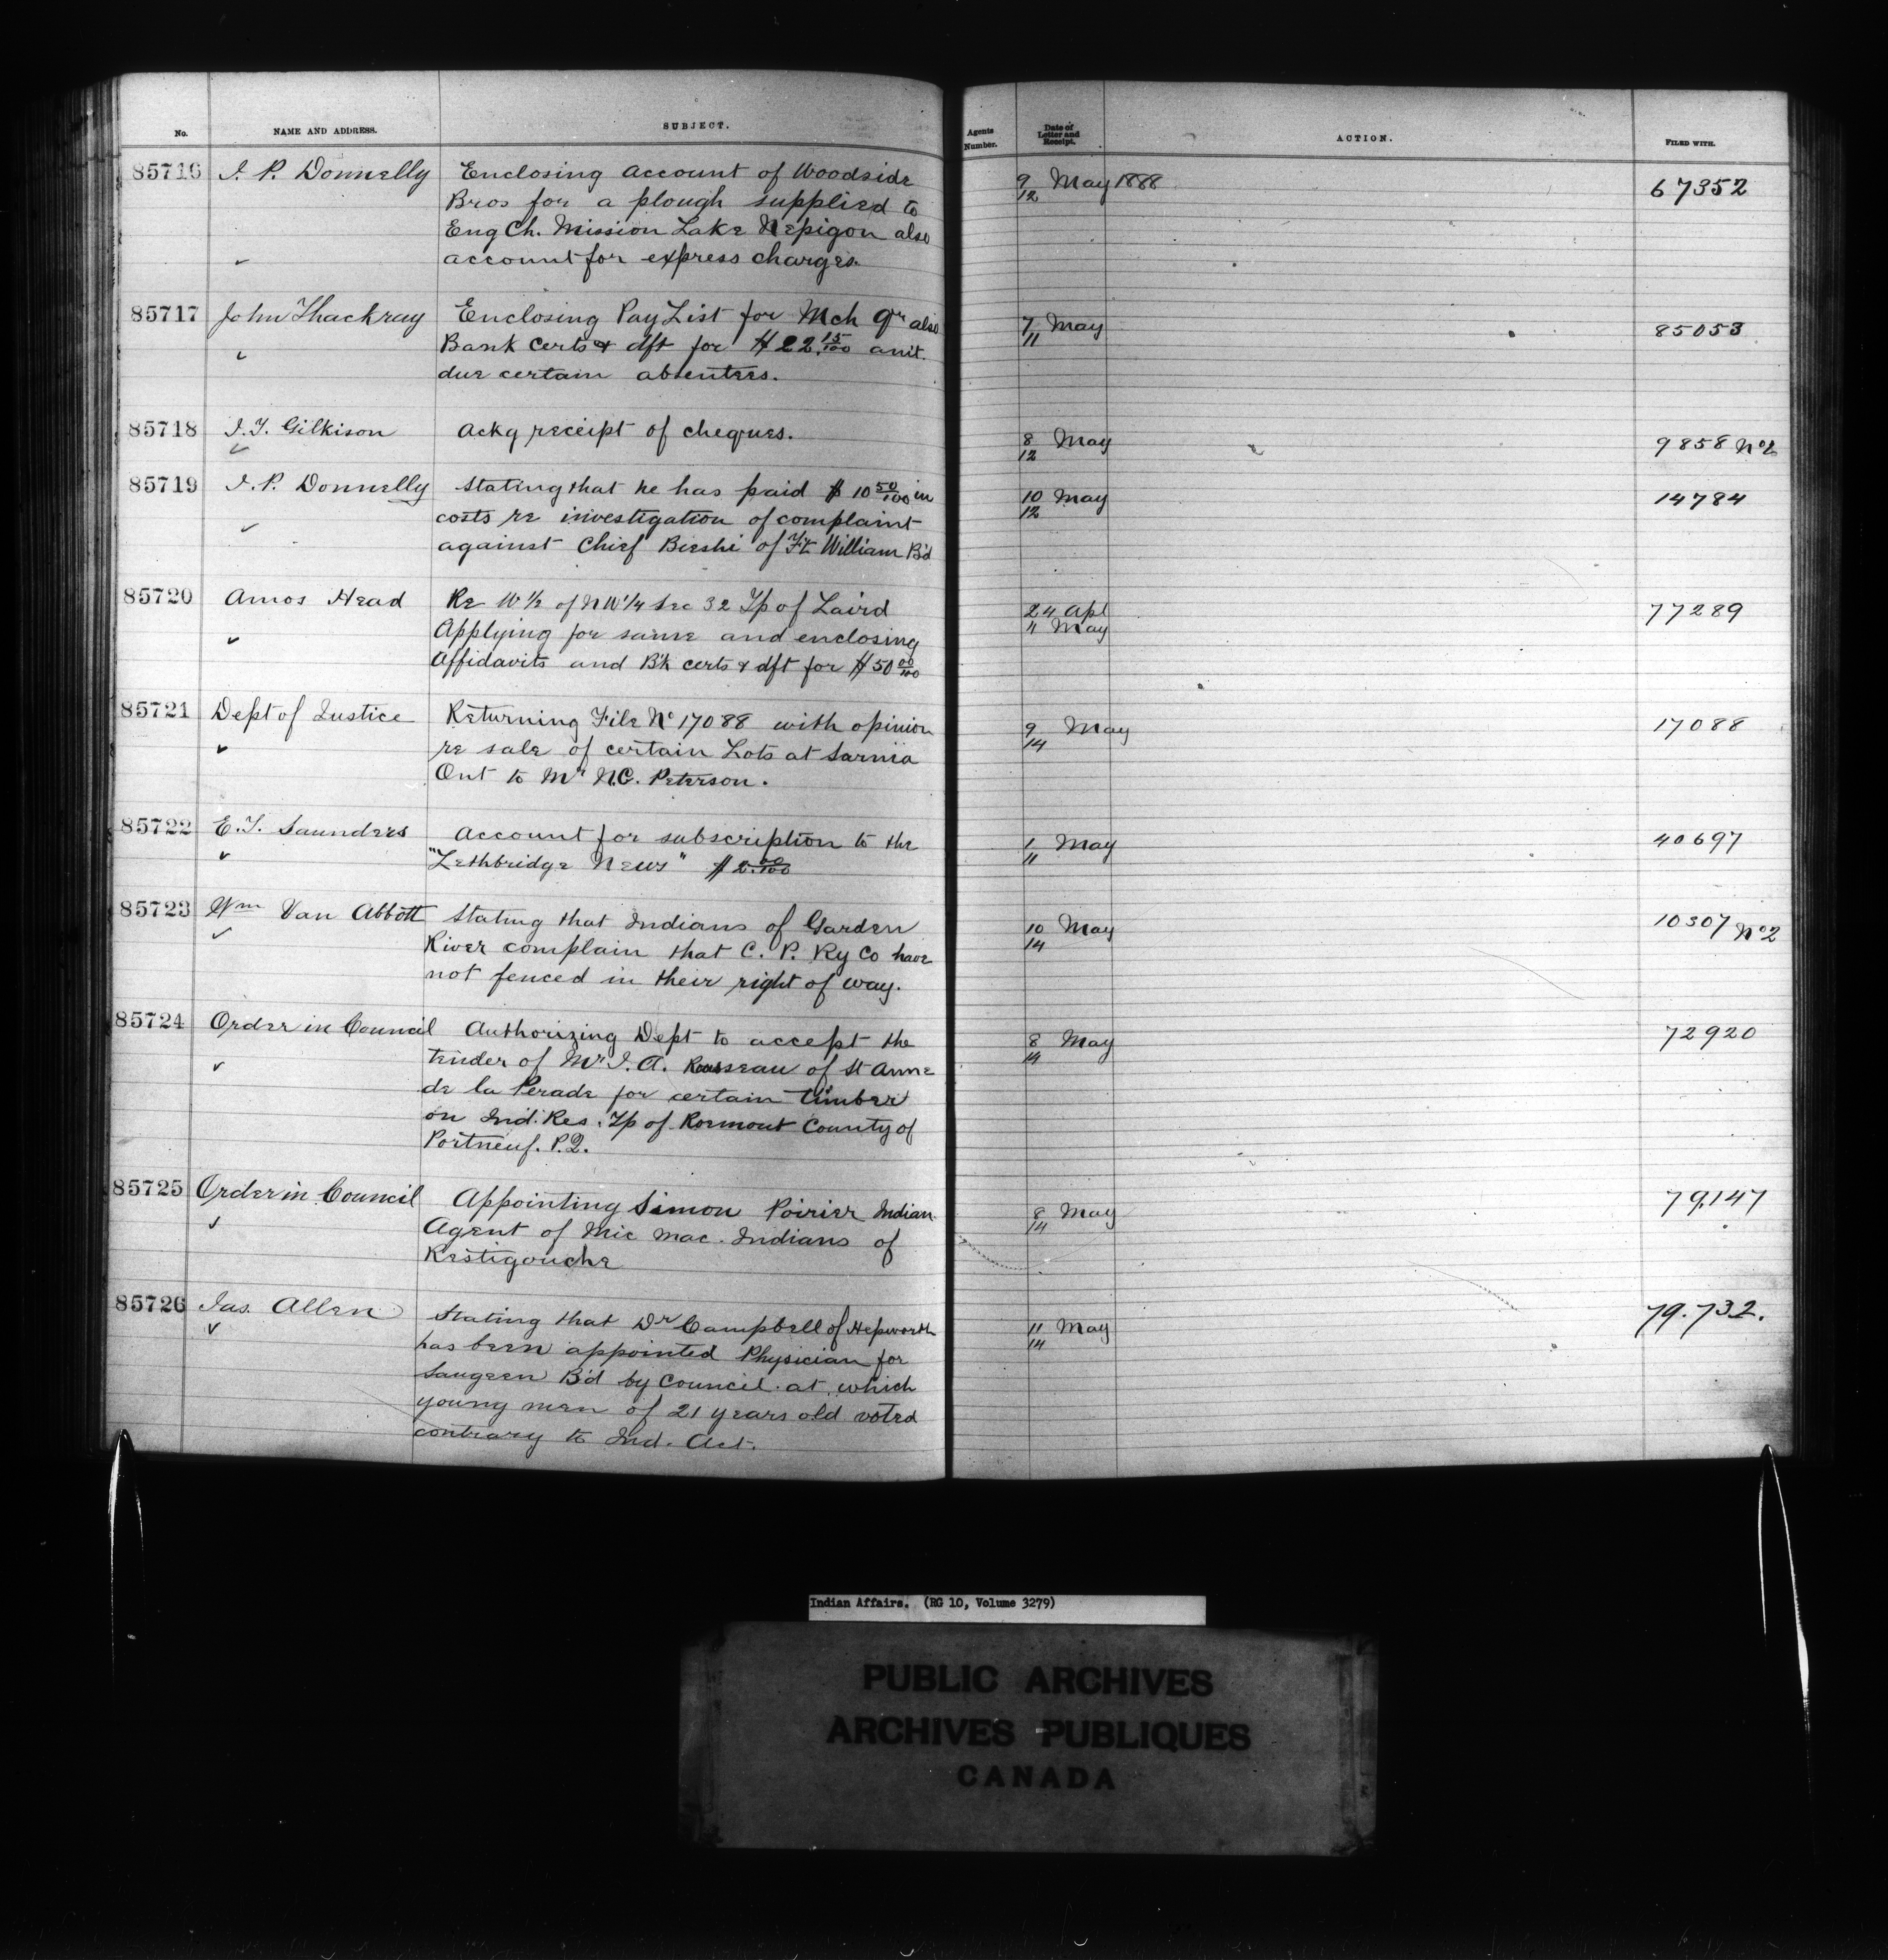 No. NAME AND ADDRESS. SUBJECT. Agents Number. Date of Letter and Receipt. ACTION. FILED WITH.
85716 J. P. Donnelly Enclosing account of Woodside 9/12 May 1888 67352
Bros for a plough supplied to
Eng Ch. Mission Lake Nepigon also
account for express charges.
85717 John Thackray Enclosing Pay List for Mch Qr also 7/11 May 85053
Bank certs & dft for $22.15/100 amt.
due certain absentees.
85718 J.T. Gilkison Ackg receipt of cheques. 8/12 May 9858 No2
85719 J. P. Donnelly Stating that he has paid $10 50/100 in 10/12 May 14784
costs re investigation of complaint
against Chief Beeshi of Ft. William Bd
85720 Amos Head Re W 1/2 of NW 1/4 Sec 32 Tp of Laird 24 Apl 77289
Applying for same and enclosing 11 May
Affidavits and B'k certs & dft for $50 00/100
85721 Dept of Justice Returning File No 17088 with opinion 9/14 May 17088
re sale of certain Lots at Sarnia
Ont to Mr N.C. Peterson.
85722 E.T. Saunders Account for subscription to the 1/11 May 40697
"Lethbridge News" $2.00/100
85723 Wm Van Abbott Stating that Indians of Garden 10/14 May 10307 No2
River complain that C. P. Ry Co have
not fenced in their right of way.
85724 Order in Council Authorizing Dept to accept the 8/14 May 72920
tender of Mr J. A. Rousseau of St Anne
de la Perade for certain timber
on Ind. Res. Tp of Rocmont County of
Portneuf. P.Q.
85725 Order in Council Appointing Simon Poirier Indian 8/14 May 79,147
Agent of Mic Mac Indians of
Restigouche
85726 Jas. Allen Stating that Dr Campbell of Hepworth 11/14 May 79.732.
has been appointed Physician for
Saugeen B'd by Council at which
young men of 21 years old voted
contrary to Ind. Act.
Indian Affairs. (RG 10, Volume 3279)
PUBLIC ARCHIVES
ARCHIVES PUBLIQUES
CANADA